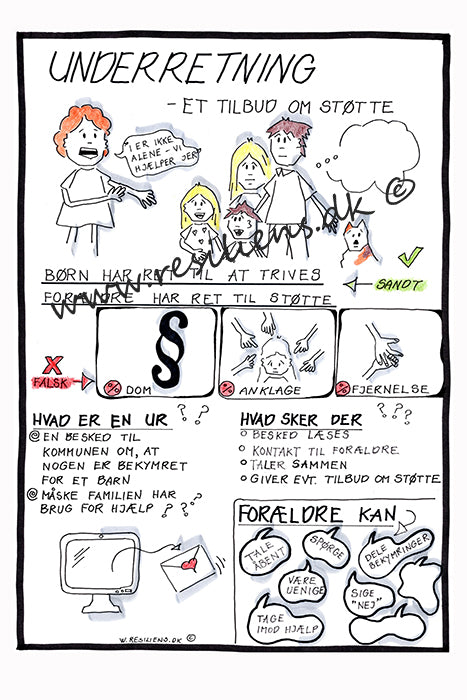 UNDERRETNING
- ET TILBUD OM STØTTE
I ER IKKE
ALENE - VI
HJÆLPER JER
www.resiliens.dk ©
BØRN HAR RET TIL AT TRIVES
FORÆLDRE HAR RET TIL STØTTE
SANDT
X
FALSK
§
% DOM
% ANKLAGE
% FJERNELSE
HVAD ER EN UR ???
@ EN BESKED TIL
KOMMUNEN OM, AT
NOGEN ER BEKYMRET
FOR ET BARN
@ MÅSKE FAMILIEN HAR
BRUG FOR HJÆLP ???
HVAD SKER DER ???
° BESKED LÆSES
° KONTAKT TIL FORÆLDRE
° TALER SAMMEN
° GIVER EVT. TILBUD OM STØTTE
FORÆLDRE KAN
TALE
ÅBENT
SPØRGE
DELE
BEKYMRINGER
VÆRE
UENIGE
SIGE
"NEJ"
TAGE
IMOD HJÆLP
W.RESILIENS.DK ©